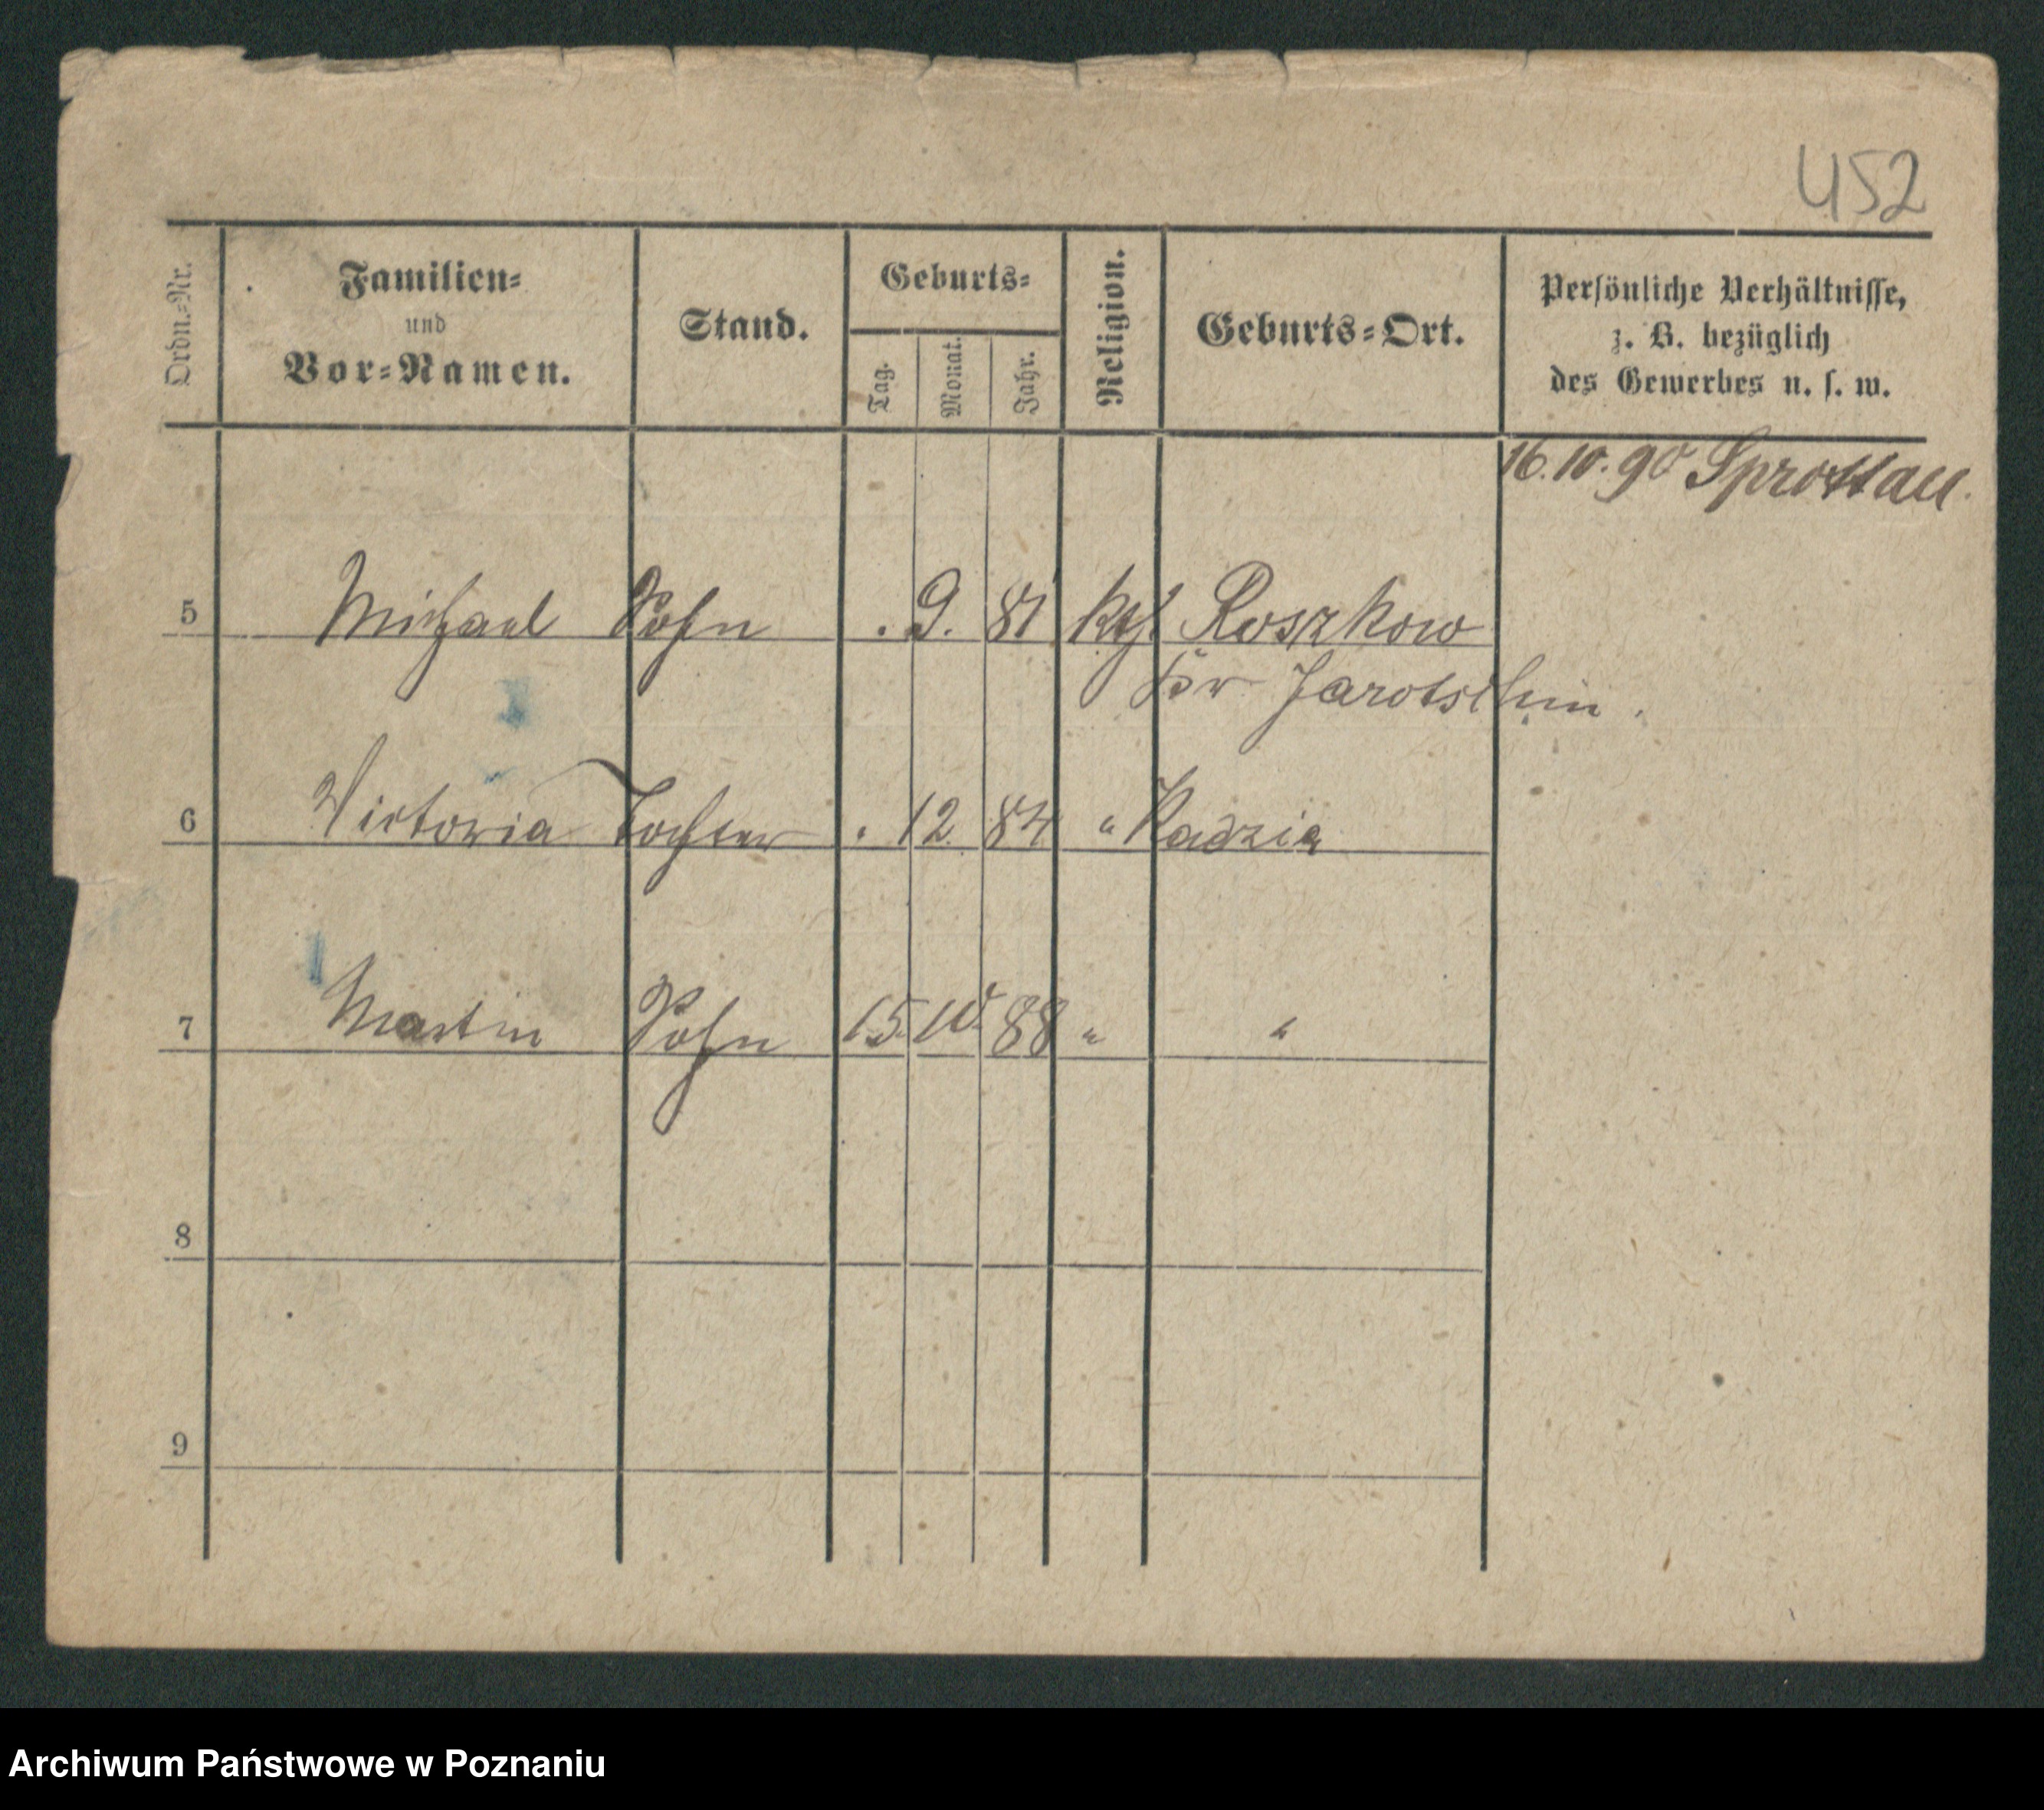 452
Ordn.-Nr.
Familien-
und
Vor-Namen.
Stand.
Geburts-
Tag.
Monat.
Jahr.
Religion.
Geburts-Ort.
Persönliche Verhältnisse,
z. B. bezüglich
des Gewerbes u. s. w.
16.10.90 Sprottau.
5 Michael Sohn . 9. 81 kth Roszkow
Kr Jarotschin.
6 Victoria Tochter . 12. 84 " Kadzia
7 Martin Sohn 15. 10. 88 " "
8
9
Archiwum Państwowe w Poznaniu